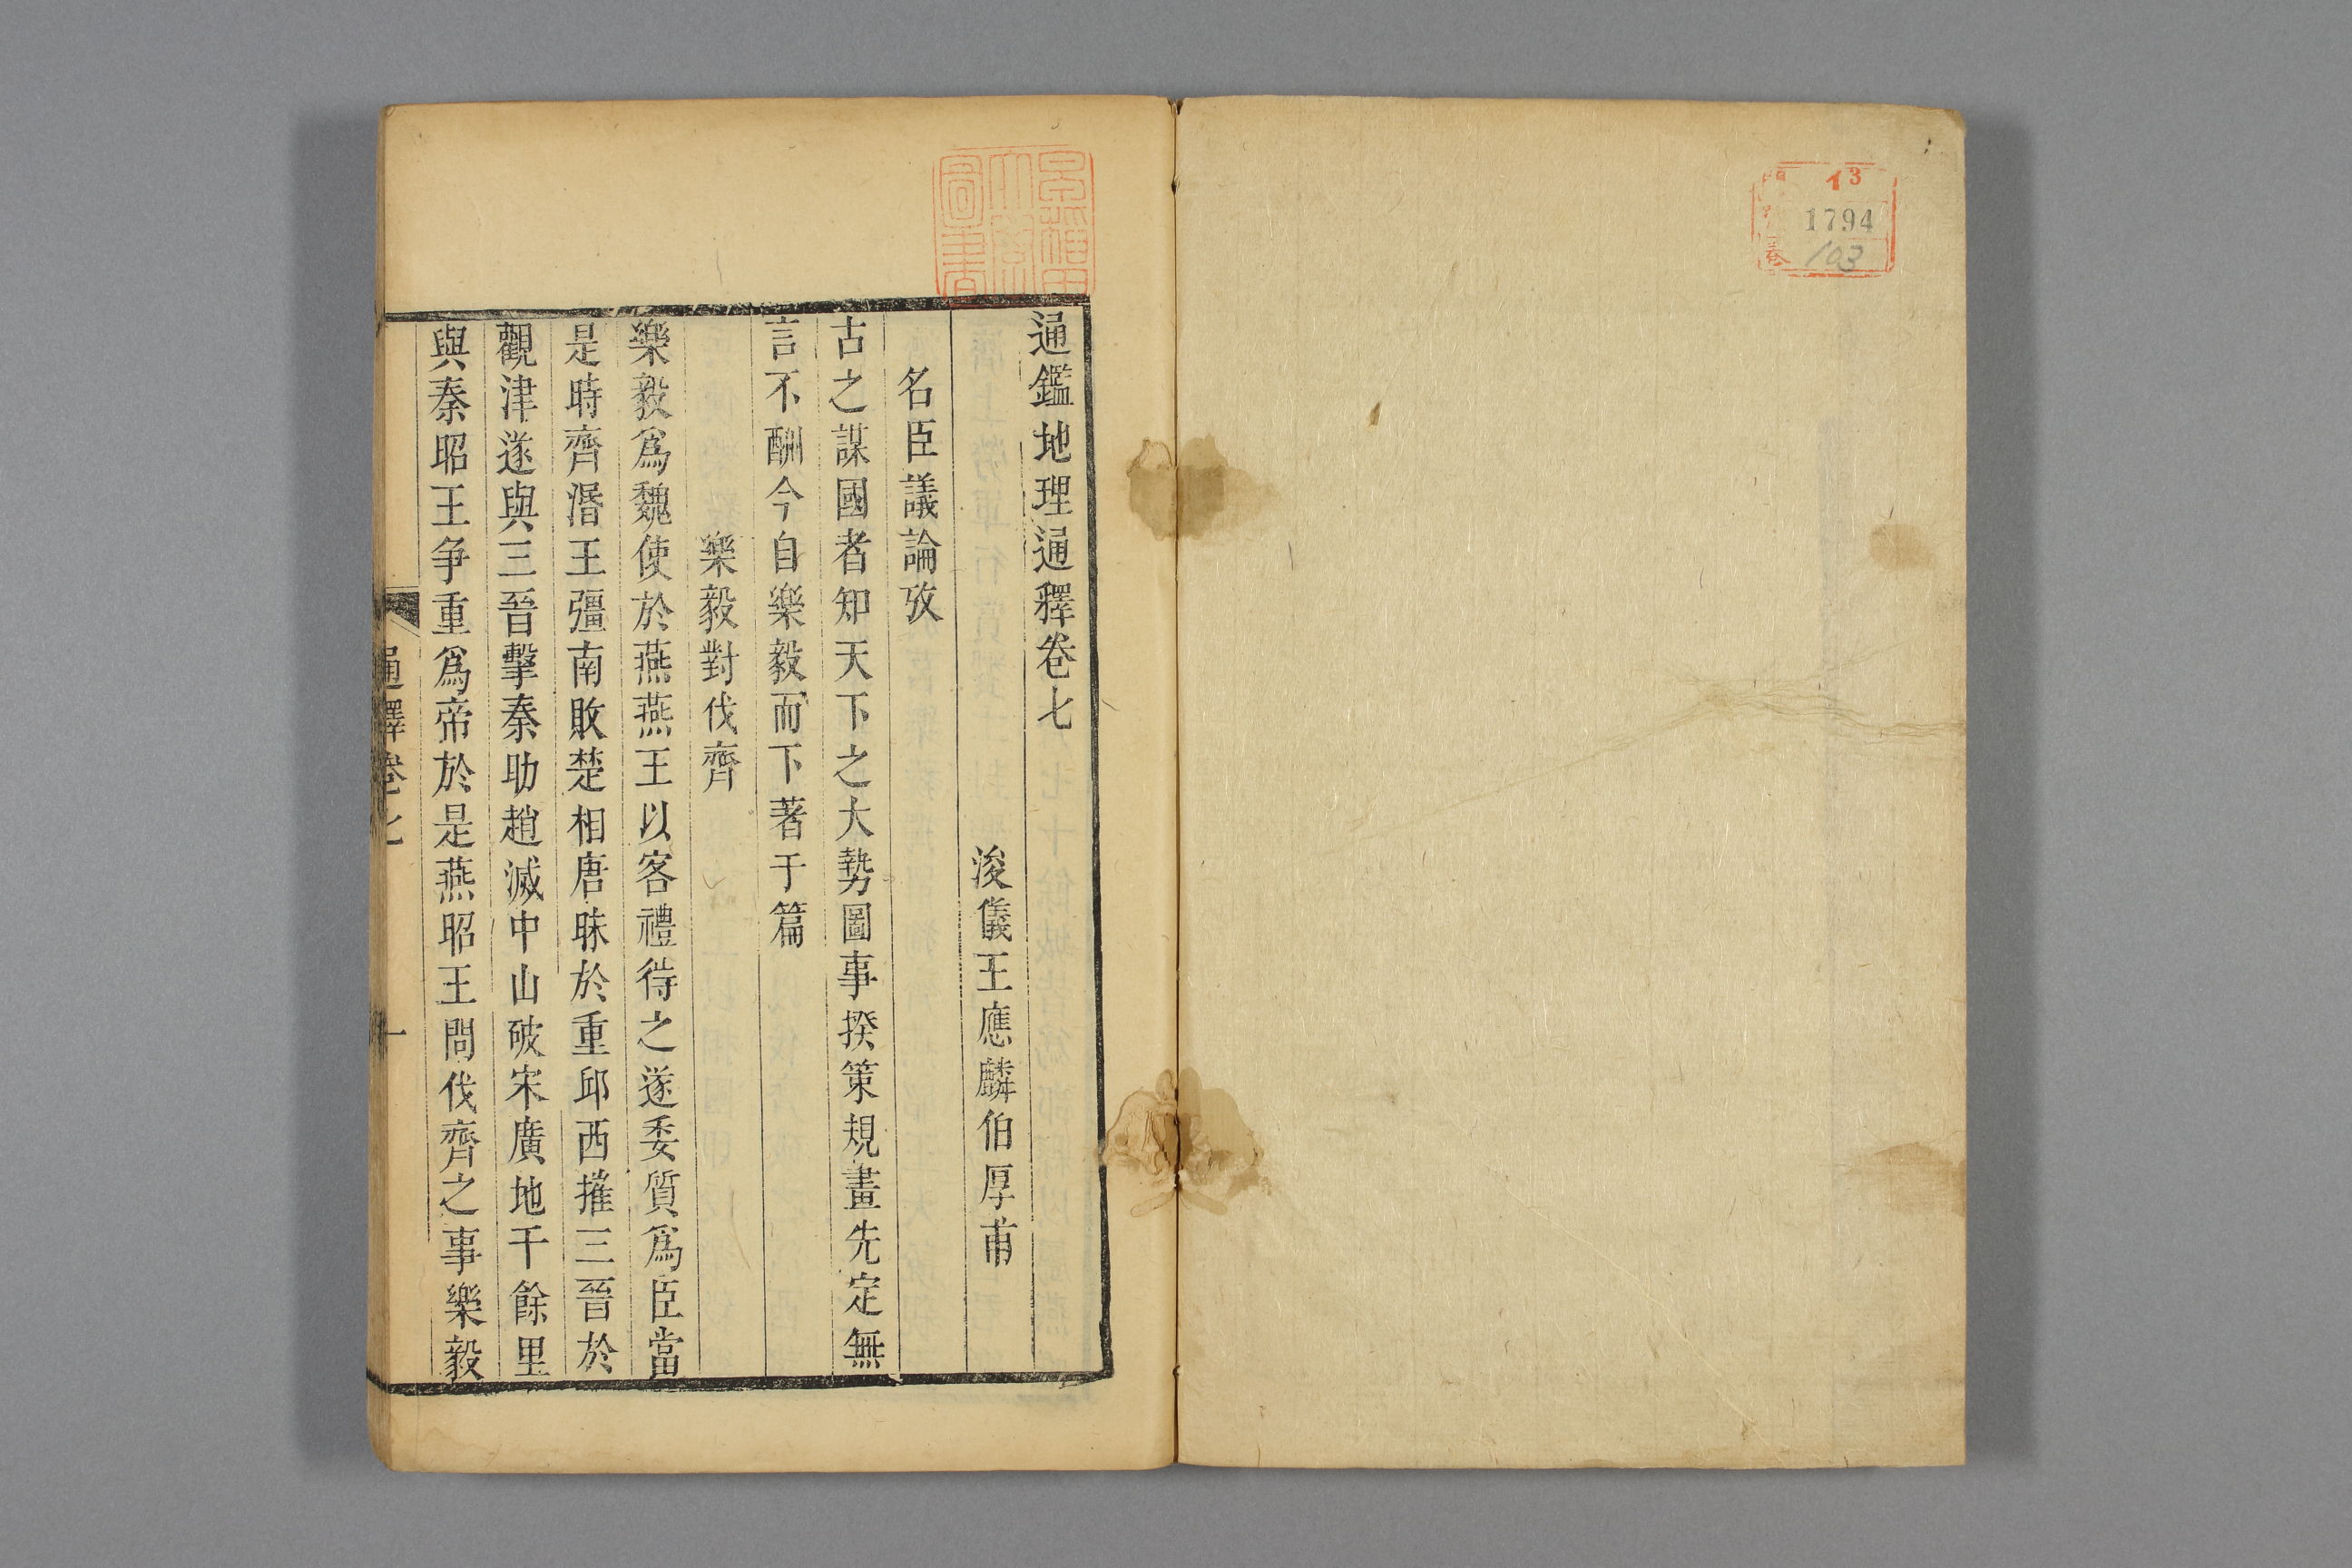 13
1794
103
通鑑地理通釋卷七
浚儀王應麟伯厚甫
名臣議論攷
古之謀國者知天下之大勢圖事揆策規畫先定無
言不酬今自樂毅而下著于篇
樂毅對伐齊
樂毅爲魏使於燕燕王以客禮待之遂委質爲臣當
是時齊湣王彊南敗楚相唐昧於重邱西摧三晉於
觀津遂與三晉擊秦助趙滅中山破宋廣地千餘里
與秦昭王争重爲帝於是燕昭王問伐齊之事樂毅
通釋卷七
一